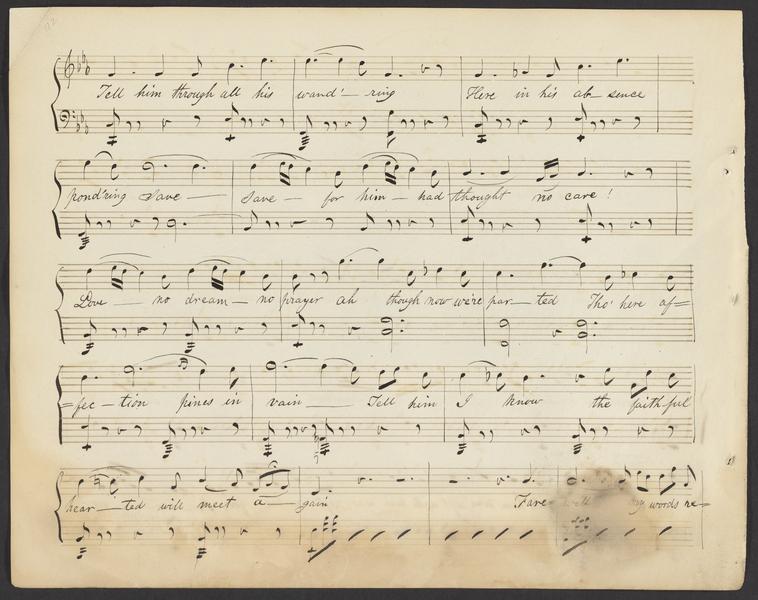 92
Tell him through all his wand'-ring Here in his ab-sence
pond'ring save — save — for him — had thought no care!
Love — no dream — no prayer ah though now we're par-ted Tho' here af=
=fec-tion pines in vain — Tell him I know the faithful
hear-ted will meet a-gain Fare-well my words re=